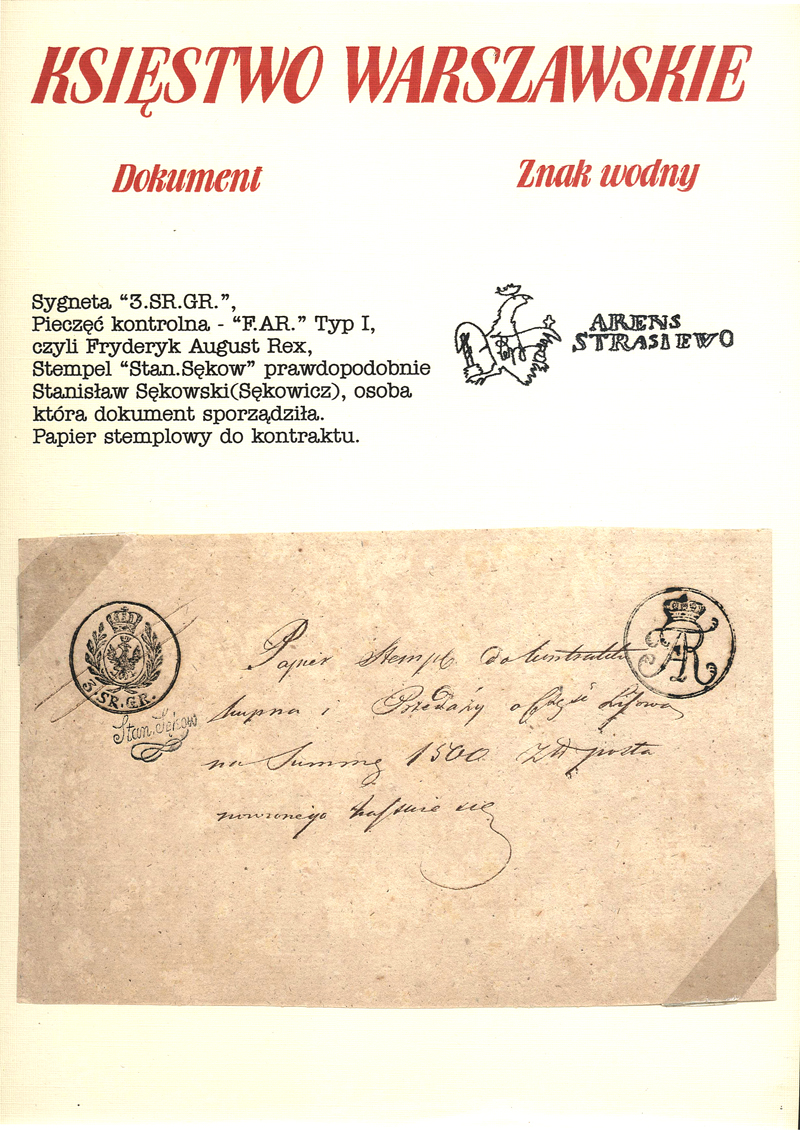 KSIĘSTWO WARSZAWSKIE
Dokument
Znak wodny
Sygneta “3.SR.GR.”,
Pieczęć kontrolna - “F.AR.” Typ I,
czyli Fryderyk August Rex,
Stempel “Stan.Sękow” prawdopodobnie
Stanisław Sękowski(Sękowicz), osoba
która dokument sporządziła.
Papier stemplowy do kontraktu.
ARENS
STRASIEWO
3.SR.GR.
Stan.Sękow
FAR
Papier Stempl. do kontraktu
kupna i Przedaży o Część
na Summę 1500 Złt